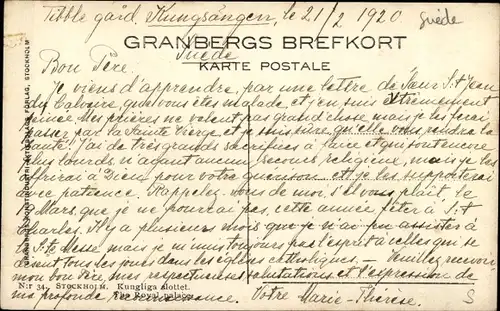 Tibble gård, Kungsängen, le 21/2 1920
Suède
GRANBERGS BREFKORT
Suède
KARTE POSTALE
Bon Père.
Je viens d'apprendre, par une lettre de Sœur St Jean
du Calvaire, que vous êtes malade et j'en suis extrêmement
peinée. Mes prières ne valent pas grand chose mais je les ferai
passer par la Sainte Vierge et je suis sûre qu'elle vous rendra la
santé. J'ai de très grands sacrifices à faire et qui sont encore
plus lourds, n'ayant aucun secours religieux, mais je les
offrirai à Dieu pour votre guérison et je les supporterai
avec patience. Rappelez-vous de moi, s'il vous plaît, le
Mars, que je ne pourrai pas, cette année fêter à St
Charles. Il y a plusieurs mois que je n'ai pu assister à
Ste Messe mais je m'unis toujours par l'esprit à celles qui se
disent tous les jours dans les églises catholiques. - Veuillez recevoir
mon bon Père, mes respectueuses salutations et l'expression de
N:r 34. STOCKHOLM. Kungliga slottet.
ma profonde reconnaissance. Votre Marie-Thérèse.
The Royal palace.
S
GRANBERGS KONSTINDUSTRI AKTIEBOLAGS FÖRLAG, STOCKHOLM